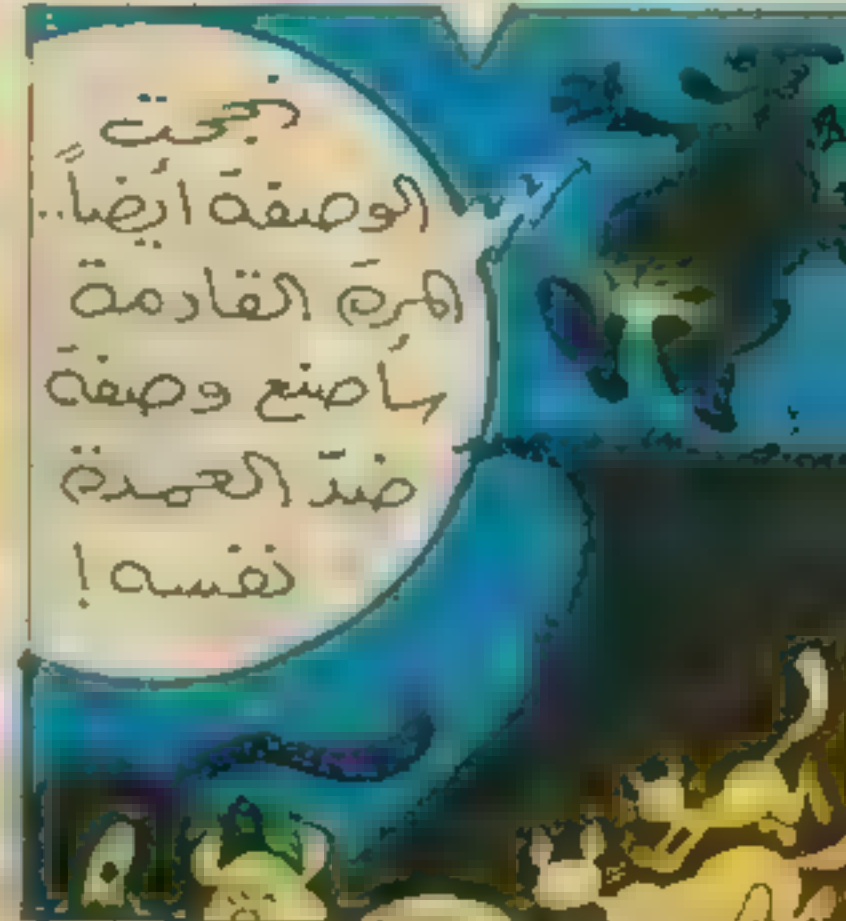 نجحت
الوصفة ايَضاً..
المرة القادمة
سَأصنع وصفة
ضدّ العمدة
نفسه !